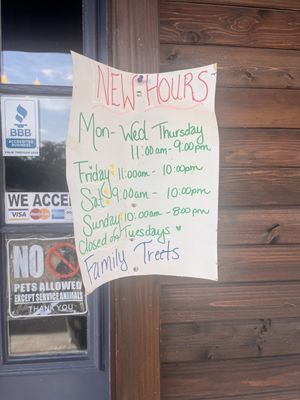 NEW HOURS
Mon-Wed Thursday
11:00am-9:00pm
Friday 11:00am - 10:00pm
Sat 9:00am - 10:00pm
Sunday 10:00am - 8:00pm
Closed on Tuesdays
Family Treets
BBB
ACCREDITED
BUSINESS
WE ACCEPT
VISA
NO
PETS ALLOWED
EXCEPT SERVICE ANIMALS
THANK YOU